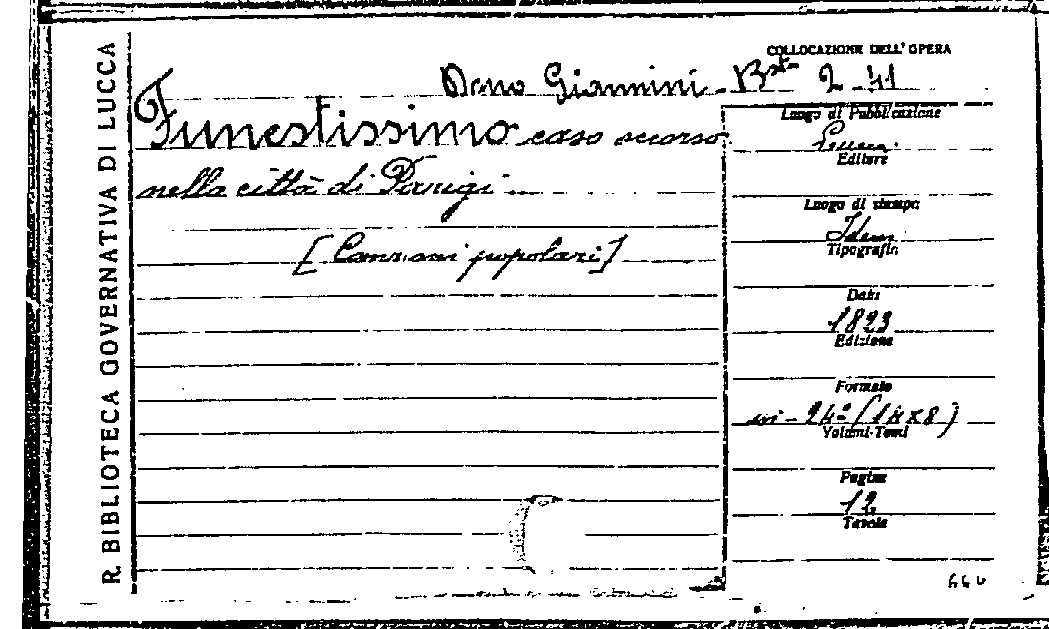 R. BIBLIOTECA GOVERNATIVA DI LUCCA
COLLOCAZIONE DELL'OPERA
Dono Giannini - Bta 2 - 41
Funestissimo caso scorso
nella città di Parigi
[Canzoni popolari]
Luogo di Pubblicazione
Lucca
Editore
Luogo di stampa
Idem
Tipografia
Data
1823
Edizione
Formato
in - 24° (14x8)
Volumi-Tomi
Pagine
12
Tavole